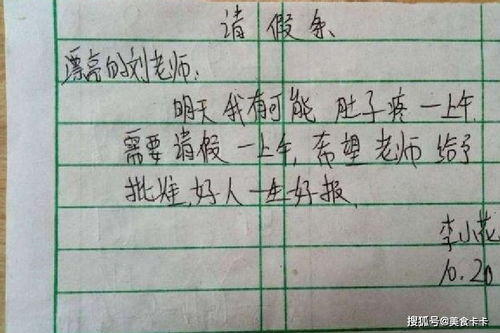 请假条
漂亮的刘老师：
明天我有可能肚子疼一上午
需要请假一上午，希望老师给予
批准，好人一生好报。
李小花
10.20
搜狐号@美食卡卡